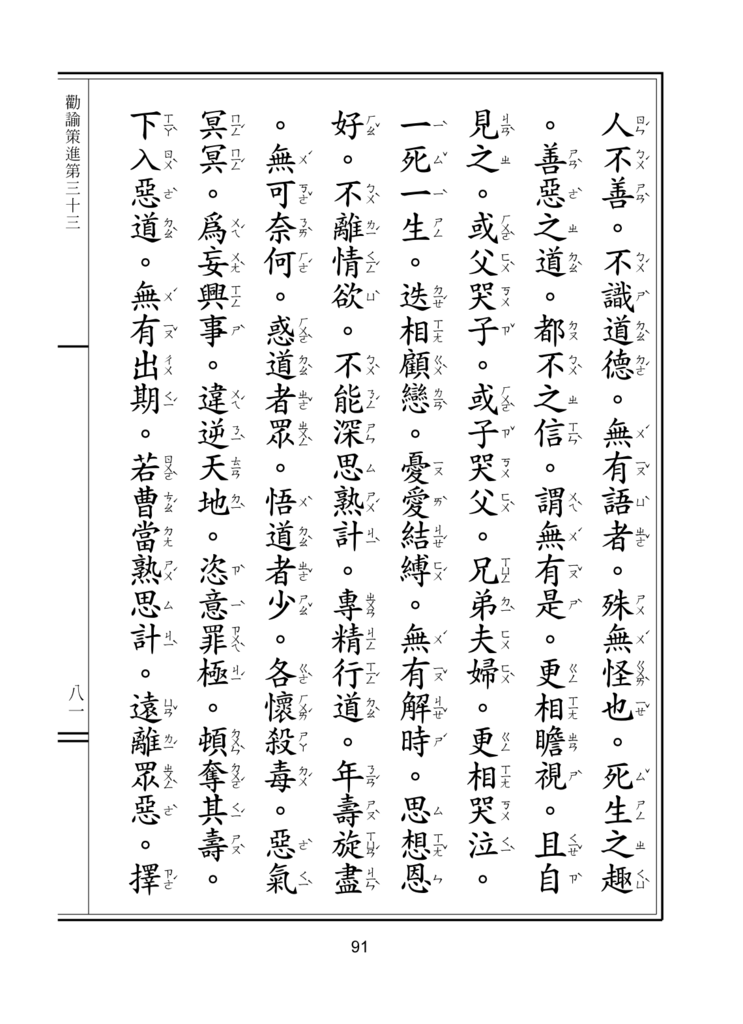 人不善。不識道德。無有語者。殊無怪也。死生之趣
。善惡之道。都不之信。謂無有是。更相瞻視。且自
見之。或父哭子。或子哭父。兄弟夫婦。更相哭泣。
一死一生。迭相顧戀。憂愛結縛。無有解時。思想恩
好。不離情欲。不能深思熟計。專精行道。年壽旋盡
。無可奈何。惑道者眾。悟道者少。各懷殺毒。惡氣
冥冥。爲妄興事。違逆天地。恣意罪極。頓奪其壽。
下入惡道。無有出期。若曹當熟思計。遠離眾惡。擇
勸諭策進第三十三
八一
91